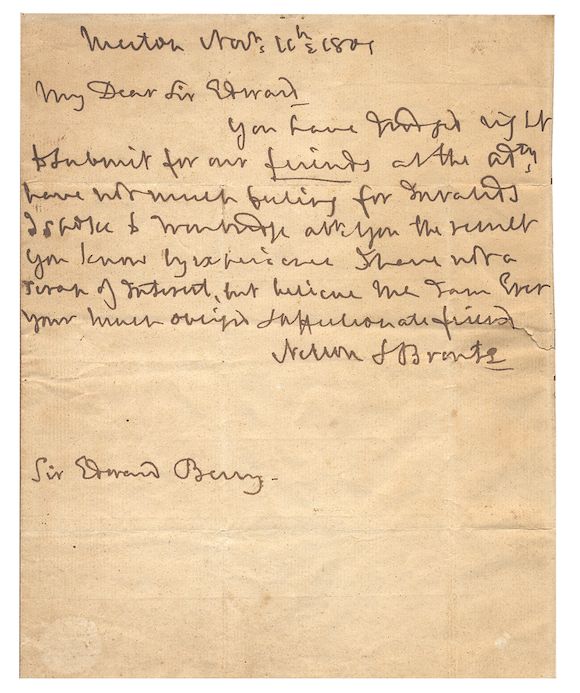 Merton Novr: 11th: 1801
My Dear Sir Edward
You have Judged right
to submit for our friends at the adty
have not much feeling for Invalids
I spoke to Troubridge ask you the result
you know by experience I have not a
scrap of Interest, but believe me I am Ever
your much obliged & affectionate friend
Nelson & Bronte
Sir Edward Berry.